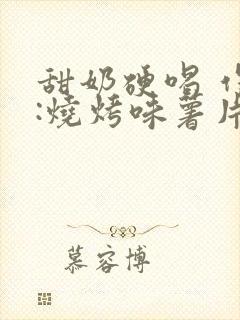 甜奶硬唱
:燒烤味薯片
慕容博